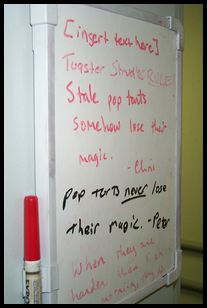 [insert text here]
Toaster Strudles RULE!
Stale pop tarts
somehow lose their
magic.
-Chini
pop tarts never lose
their magic. -Peter
When they are
harder than